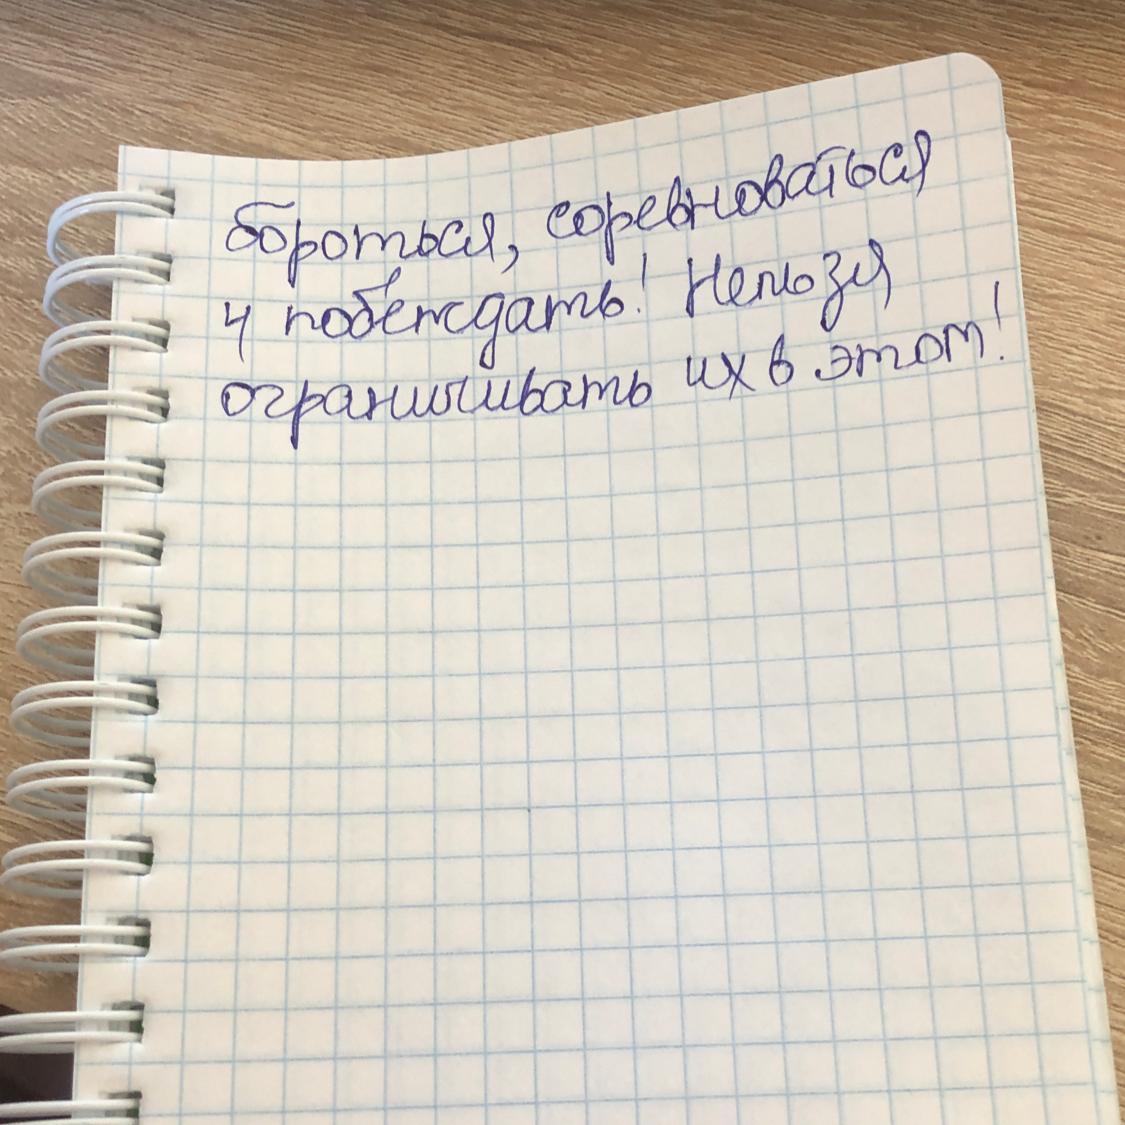 бороться, соревноваться
и побеждать! Нельзя
ограничивать их в этом!